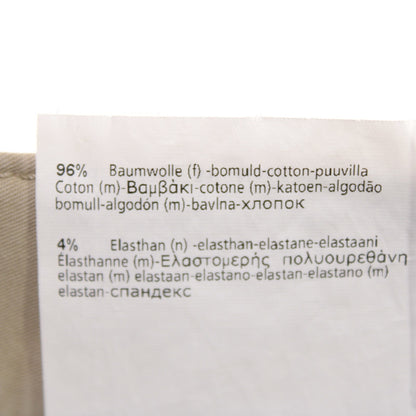 96% Baumwolle (f) -bomuld-cotton-puuvilla
Coton (m)-Βαμβάκι-cotone (m)-katoen-algodão
bomull-algodón (m)-bavlna-хлопок
4% Elasthan (n) -elasthan-elastane-elastaani
Élasthanne (m)-Ελαστομερής πολυουρεθάνη
elastan (m) elastaan-elastano-elastan-elastano (m)
elastan-спандекс